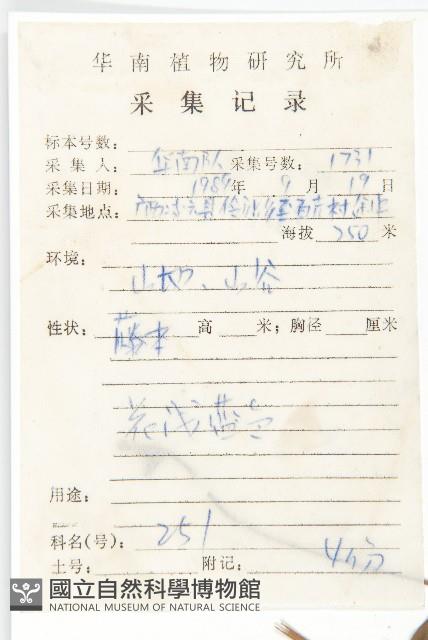 华南植物研究所
采集记录
标本号数：
采集人： 华南队 采集号数： 1731
采集日期： 1989年 9月 19日
采集地点：
海拔 250 米
环境：
山地、山谷
性状： 藤本 高 米；胸径 厘米
花浅蓝色
用途：
科名(号)： 251
土号： 附记： 4份
國立自然科學博物館
NATIONAL MUSEUM OF NATURAL SCIENCE